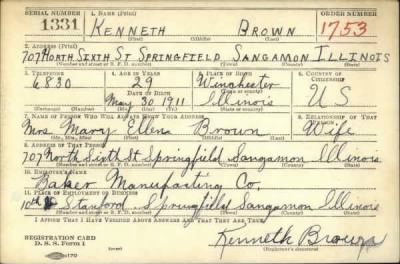 SERIAL NUMBER 1. NAME (Print) ORDER NUMBER
1331 KENNETH BROWN 1753
(First) (Middle) (Last)
2. ADDRESS (Print)
707 NORTH SIXTH ST SPRINGFIELD SANGAMON ILLINOIS
(Number and street or R. F. D. number) (Town) (County) (State)
3. TELEPHONE 4. AGE IN YEARS 5. PLACE OF BIRTH 6. COUNTRY OF CITIZENSHIP
6830 29 Winchester
DATE OF BIRTH (Town or county)
May 30 1911 Illinois U S
(Exchange) (Number) (Mo.) (Day) (Yr.) (State or country)
7. NAME OF PERSON WHO WILL ALWAYS KNOW YOUR ADDRESS 8. RELATIONSHIP OF THAT PERSON
Mrs. Mary Ellen Brown Wife
(Mr., Mrs., Miss) (First) (Middle) (Last)
9. ADDRESS OF THAT PERSON
707 North Sixth St Springfield Sangamon Illinois
(Number and street or R. F. D. number) (Town) (County) (State)
10. EMPLOYER'S NAME
Baker Manufasting Co.
11. PLACE OF EMPLOYMENT OR BUSINESS
10th & Stanford Springfield Sangamon Illinois
(Number and street or R. F. D. number) (Town) (County) (State)
I AFFIRM THAT I HAVE VERIFIED ABOVE ANSWERS AND THAT THEY ARE TRUE.
REGISTRATION CARD
D. S. S. Form 1 Kenneth Brown
(Registrant's signature)